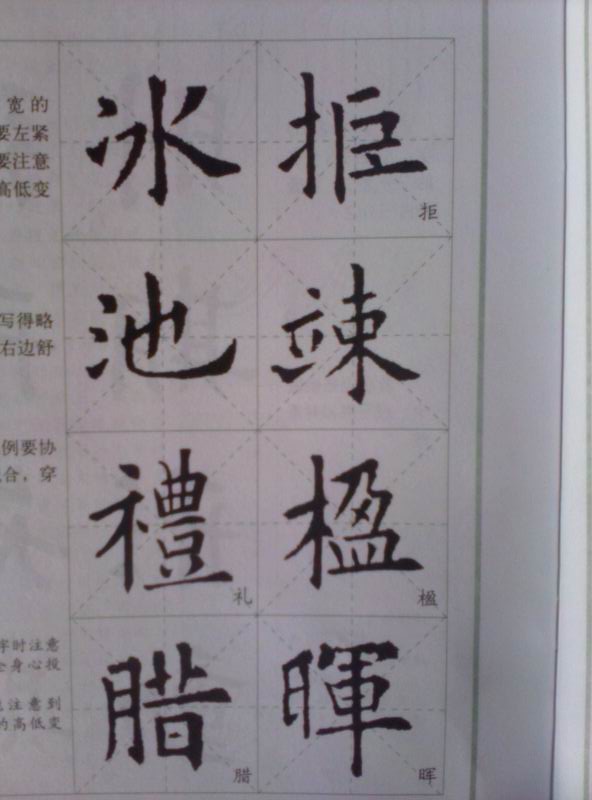 宽的
要左紧
要注意
高低变
冰 拒
拒
写得略
右边舒
池 竦
例要协
合，穿
禮 楹
礼 楹
字时注意
全身心投
也注意到
的高低变
腊 暉
腊 晖